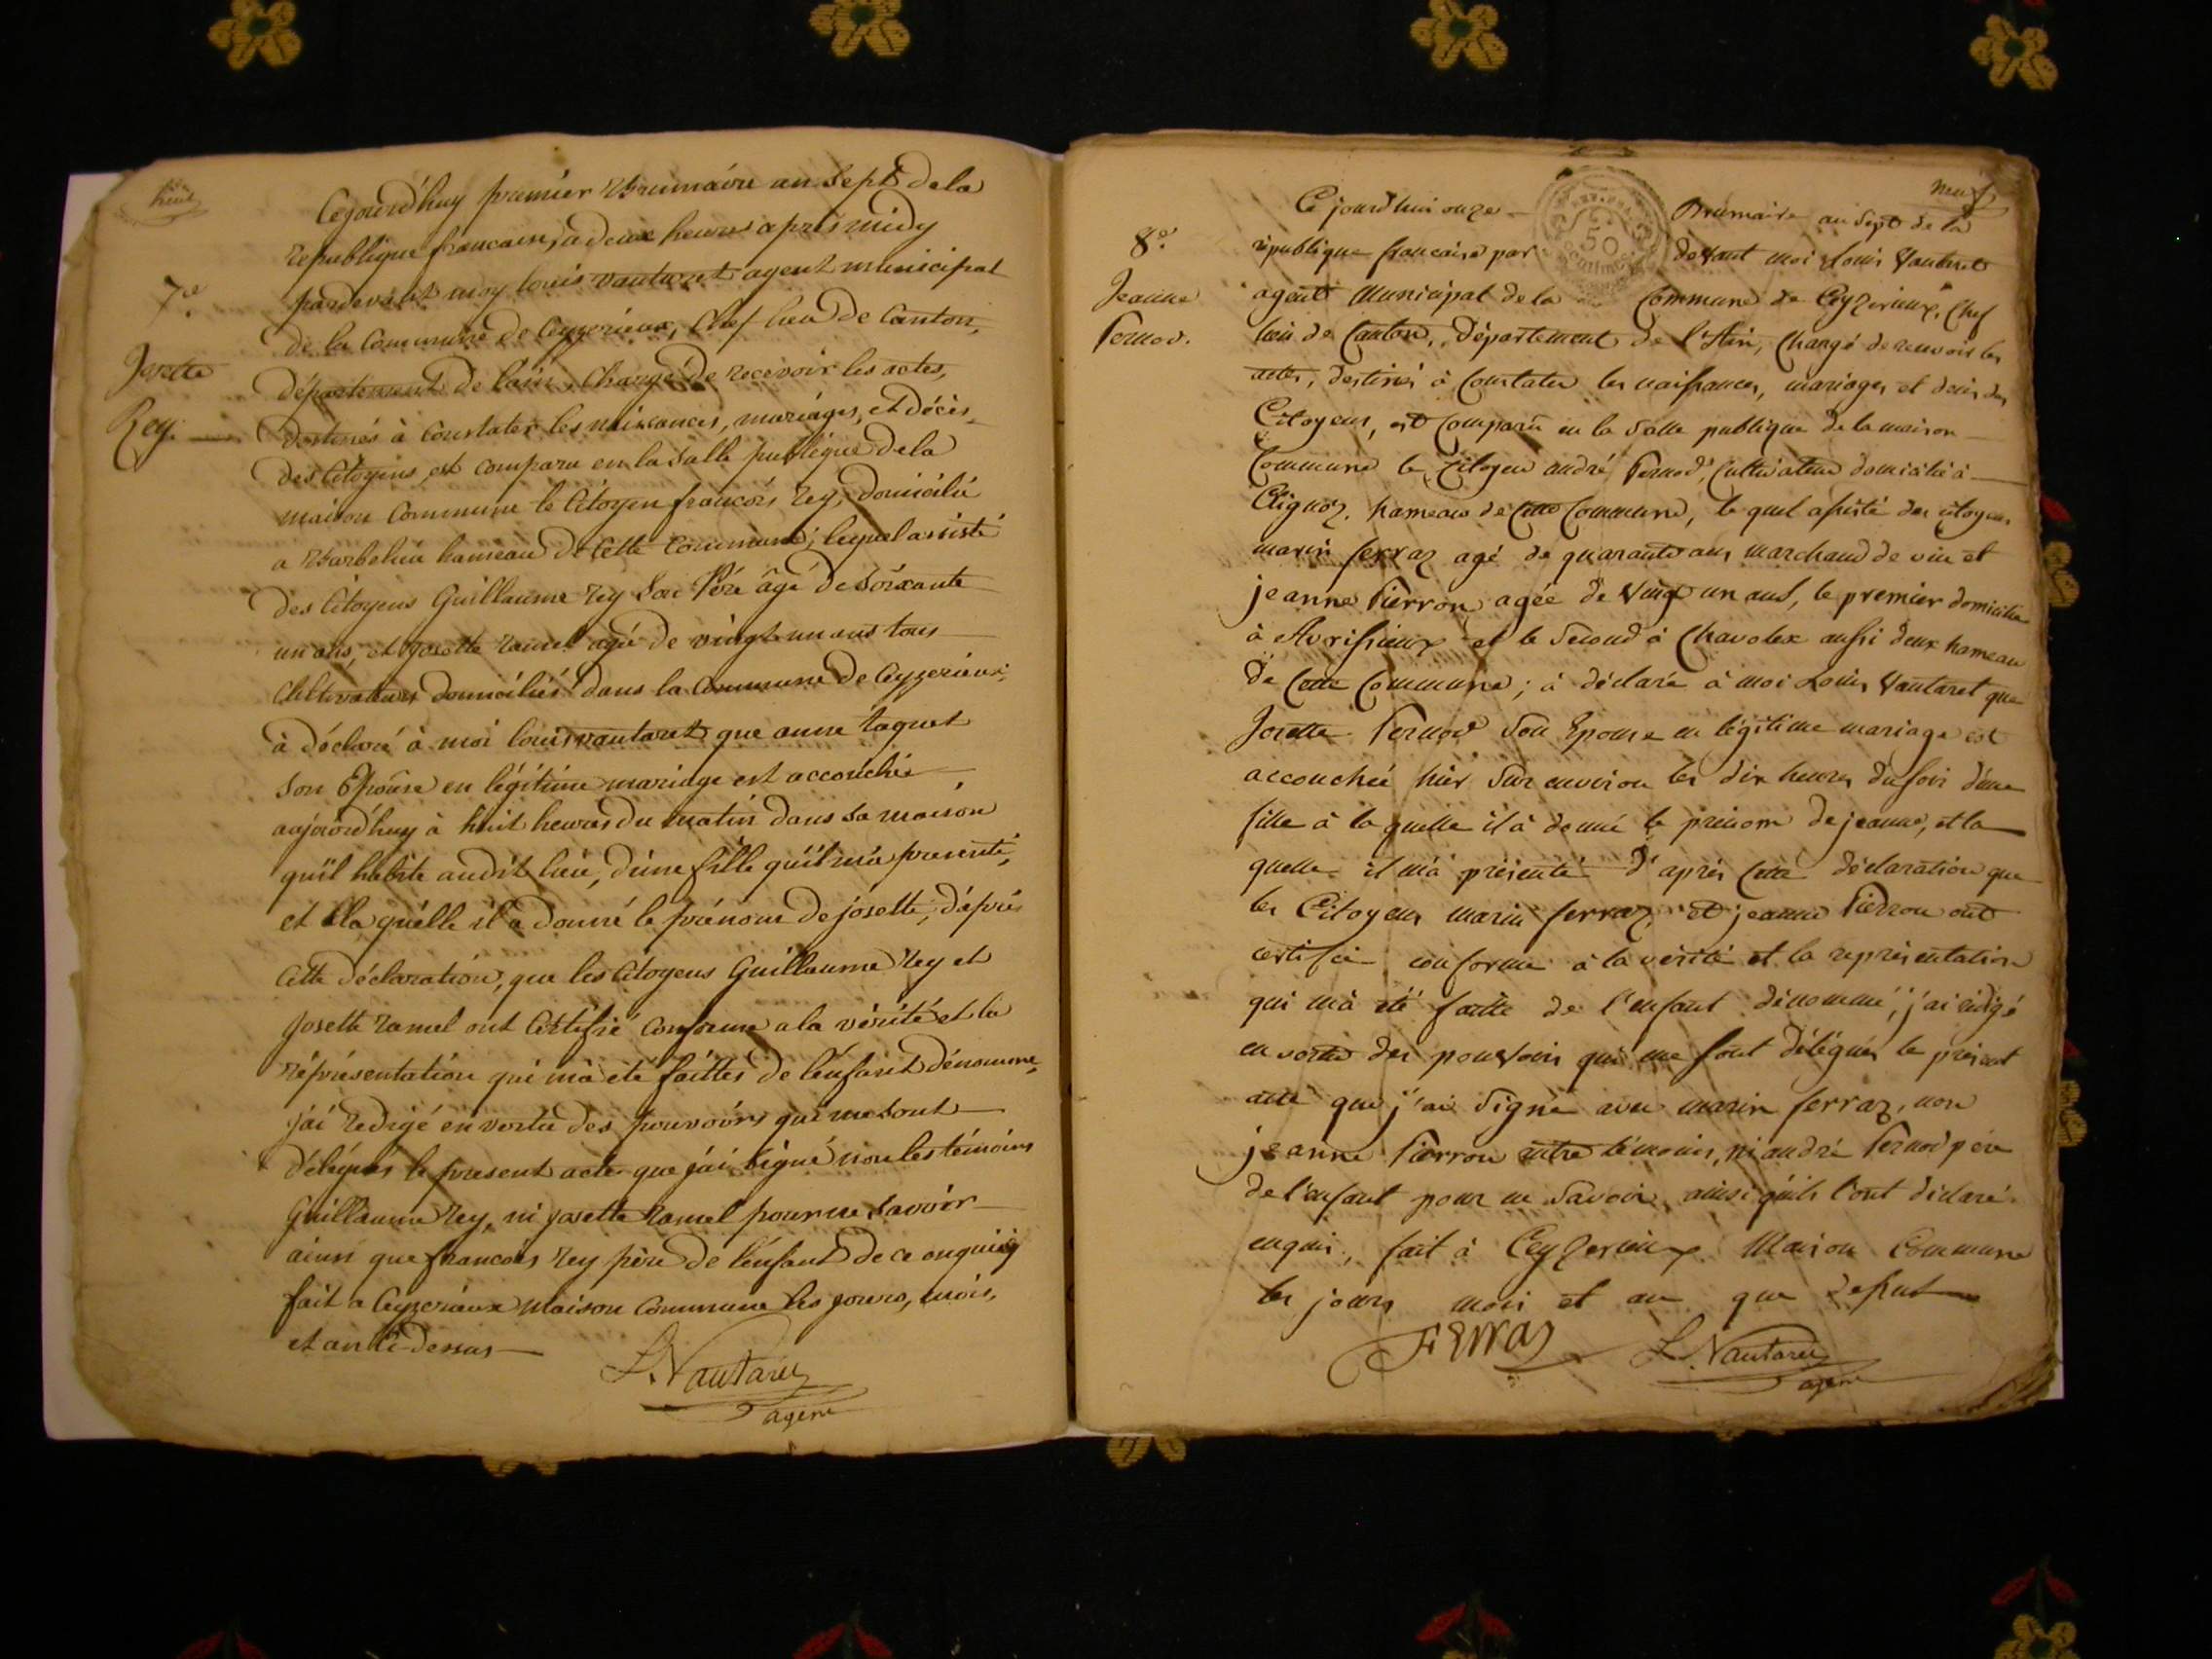 huit
Cejourd'huy premier Brumaire an Sept de la
republique francaise, a deux heures après midy
pardevant moy louis vautaret agent municipal
de la Commune de Ceyzerieux, Chef lieu de Canton,
7e.
Josette
Rey.
département de l'ain, Chargé de recevoir les actes,
destinés à Constater les naissances, mariages, et décès
des Citoyens, est comparu en la Salle publique de la
maison Commune le Citoyen francois Rey, domicilié
a Barbelieu hameau de Cette Commune; lequel assisté
des Citoyens Guillaume Rey Son Père âgé de Soixante
un ans, et josette ramel agée de vingt un ans tous
Cultivateurs domiciliés dans la Commune de Ceyzerieux,
à déclaré à moi louis vautaret que anne taguet
Son Epouse en légitime mariage est accouchée
aujourd'huy à huit heures du matin dans Sa maison
qu'il habite audit lieu, d'une fille qu'il m'a presenté,
et a la quelle il a donné le prénom de josette, d'après
Cette déclaration, que les Citoyens Guillaume Rey et
Josette ramel ont Certifié Conforme a la vérité et la
réprésentation qui m'à été faittes de l'enfant dénommé,
j'ai redigé en vertu des pouvoirs qui me Sont
délégués le present acte que j'ai Signé non les témoins
Guillaume Rey, ni josette ramel pour ne Savoir
ainsi que francois Rey père de l'enfant de ce enquis
fait a Ceyzerieux maison Commune les jours, mois,
et an ci-dessus
L. Vautaret
agent
neuf
8e.
Jeanne
Pernod.
50
centimes
Ce jourd'hui onze Brumaire an Sept de la
république francaise par devant moi Louis Vautaret
agent Municipal de la Commune de Ceyzerieux, Chef
lieu de Canton, Département de l'Ain, Chargé de recevoir les
actes, destinés à Constater les naissances, mariages et décès des
Citoyens, est Comparu en la Salle publique de la maison
Commune le Citoyen andré Pernod, Cultivateur domicilié à
Clignoz, hameau de Cette Commune, le quel assisté des citoyens
marin ferraz agé de quarante ans marchand de vin et
jeanne Pierron agée de vingt un ans, le premier domicilié
à Avrissieux et le Second à Chavolex aussi deux hameau
de Cette Commune; à déclaré à moi Louis Vautaret que
Josette Pernod Son Epouse en légitime mariage est
accouchée hier Sur environ les dix heures du soir d'une
fille à la quelle il à donné le prénom de jeanne, et la
quelle il m'à présenté d'après Cette déclaration que
les Citoyens marin ferraz et jeanne Pierron ont
certifié conforme à la vérité et la représentation
qui m'à été faitte de l'enfant dénommé, j'ai rédigé
en vertu des pouvoirs qui me sont délégués le présent
acte que j'ai Signé avec marin ferraz, non
jeanne Pierron autre témoins, ni andré Pernod père
de l'enfant pour ne Savoir, ainsi qu'ils l'ont déclaré
enquis, fait à Ceyzerieux Maison Commune
les jours mois et an que
FERRAZ L. Vautaret
agent